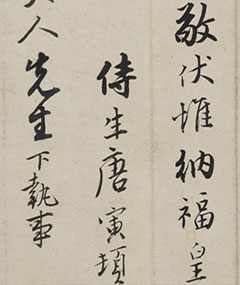 敬伏惟納福皇
侍生唐寅頓
人先生下執事